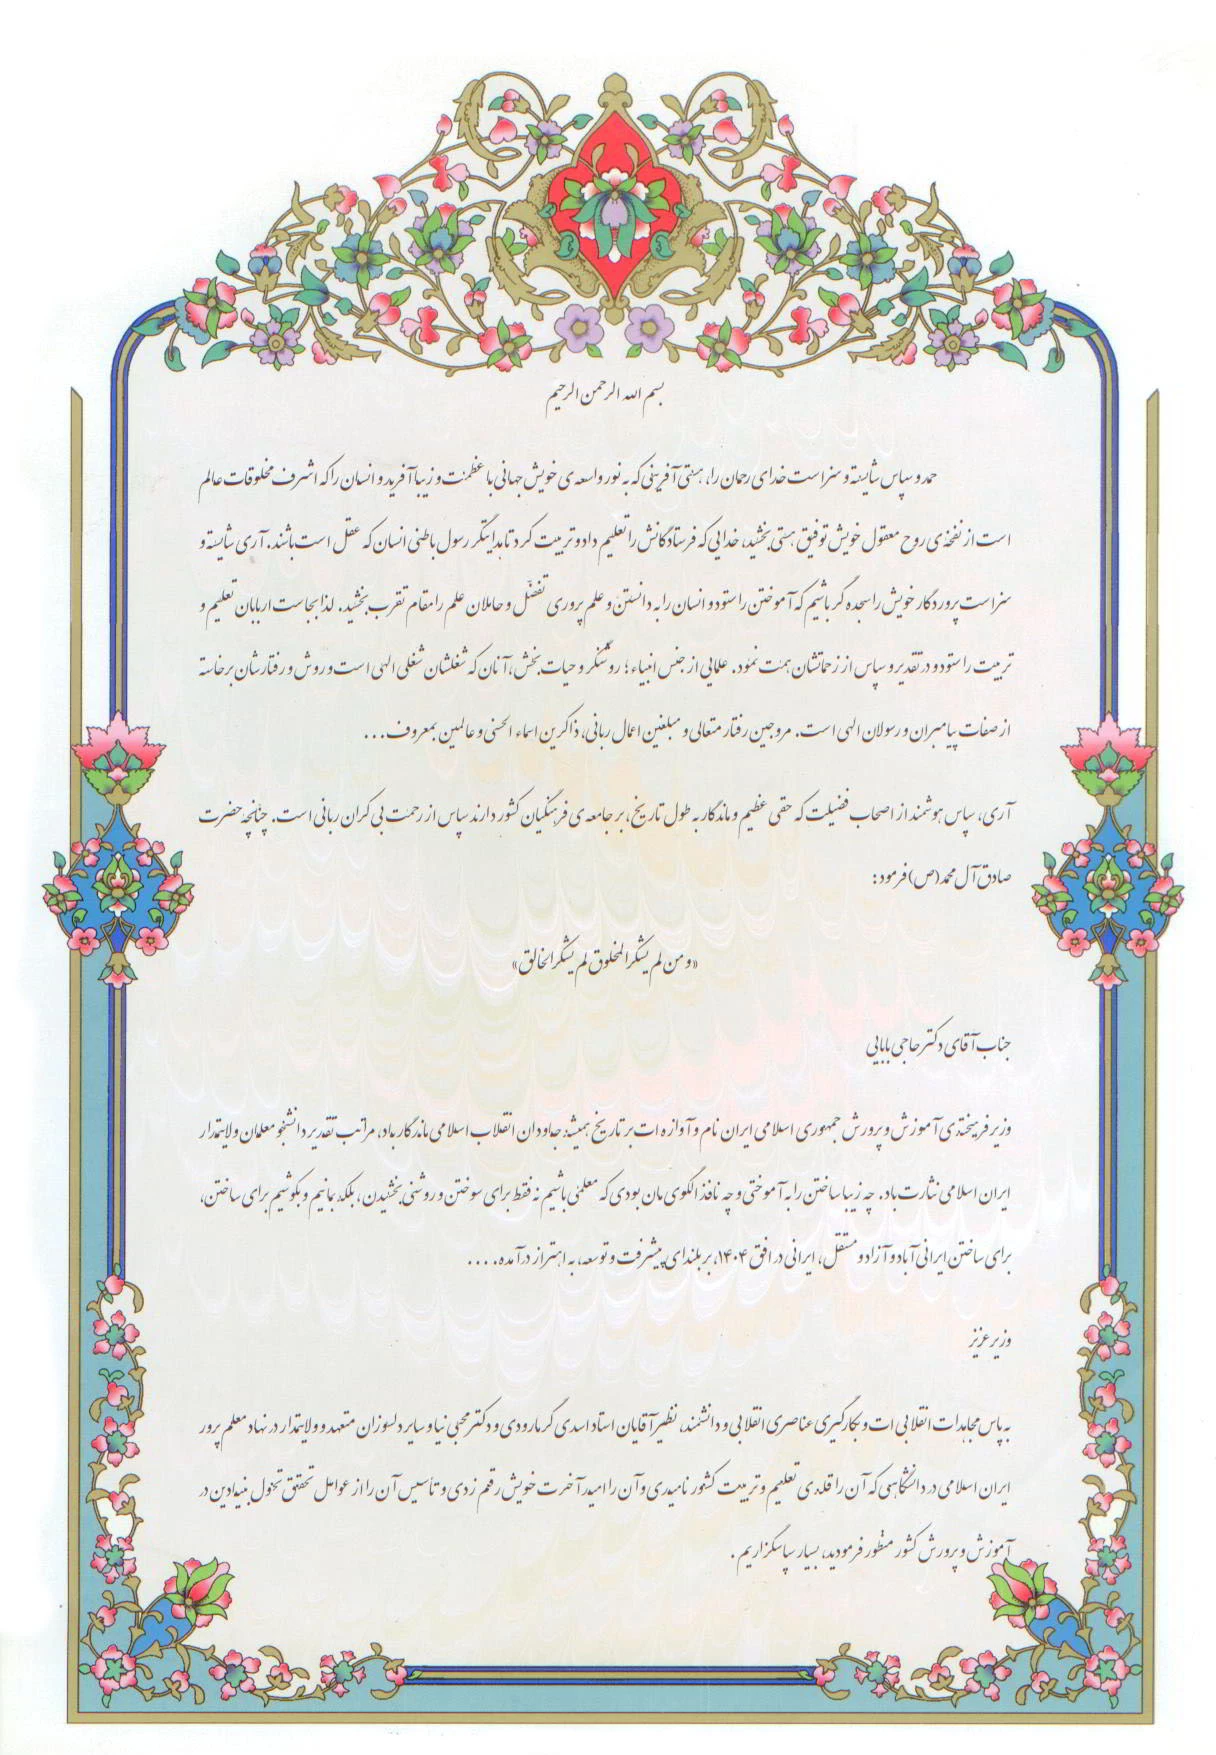 بسم الله الرحمن الرحیم
حمد و سپاس شایسته و سزاست خدای رحمان را، هستی آفرینی که به نور واسعه ی خویش جهانی با عظمت و زیبا آفرید و انسان را که اشرف مخلوقات عالم
است از نفخه ی روح معقول خویش توفیق هستی بخشید، خدایی که فرستادگانش را تعلیم داد و تربیت کرد تا هدایتگر رسول باطنی انسان که عقل است باشند. آری شایسته و
سزاست پروردگار خویش را سجده گر باشیم که آموختن را ستود و انسان را به دانستن و علم پروری تفضّل و حاملان علم را مقام تقرب بخشید. لذا بجاست اربابان تعلیم و
تربیت را ستود و در تقدیر و سپاس از زحماتشان همت نمود. علمایی از جنس انبیاء؛ روشنگر و حیات بخش، آنان که شغلشان شغلی الهی است و روش و رفتارشان برخاسته
از صفات پیامبران و رسولان الهی است. مروجین رفتار متعالی و مبلغین اعمال ربانی، ذاکرین اسماء الحسنی و عالمین بمعروف...
آری، سپاس هوشمند از اصحاب فضیلت که حقی عظیم و ماندگار به طول تاریخ، بر جامعه ی فرهنگیان کشور دارند سپاس از رحمت بی کران ربانی است. چنانچه حضرت
صادق آل محمد (ص) فرمود:
«و من لم یشکر المخلوق لم یشکر الخالق»
جناب آقای دکتر حاجی بابایی
وزیر فرهیخته ی آموزش و پرورش جمهوری اسلامی ایران نام و آوازه ات بر تاریخ همیشه جاودان انقلاب اسلامی ماندگار باد، مراتب تقدیر دانشجو معلمان ولایتمدار
ایران اسلامی نثارت باد. چه زیبا ساختن را به آموختی و چه نافذ الگوی مان بودی که معلمی باشیم نه فقط برای سوختن و روشنی بخشیدن، بلکه بمانیم و بکوشیم برای ساختن،
برای ساختن ایرانی آباد و آزاد و مستقل، ایرانی در افق ۱۴۰۴، بر بلندای پیشرفت و توسعه، به اهتراز درآمده....
وزیر عزیز
به پاس مجاهدات انقلابی ات و بکارگیری عناصری انقلابی و دانشمند، نظیر آقایان استاد اسدی گرمارودی و دکتر محبی نیا و سایر دلسوزان متعهد و ولایتمدار در نهاد معلم پرور
ایران اسلامی در دانشگاهی که آن را قله ی تعلیم و تربیت کشور نامیدی و آن را امید آخرت خویش رقم زدی و تأسیس آن را از عوامل تحقق تحول بنیادین در
آموزش و پرورش کشور منظور فرمودید، بسیار سپاسگزاریم.